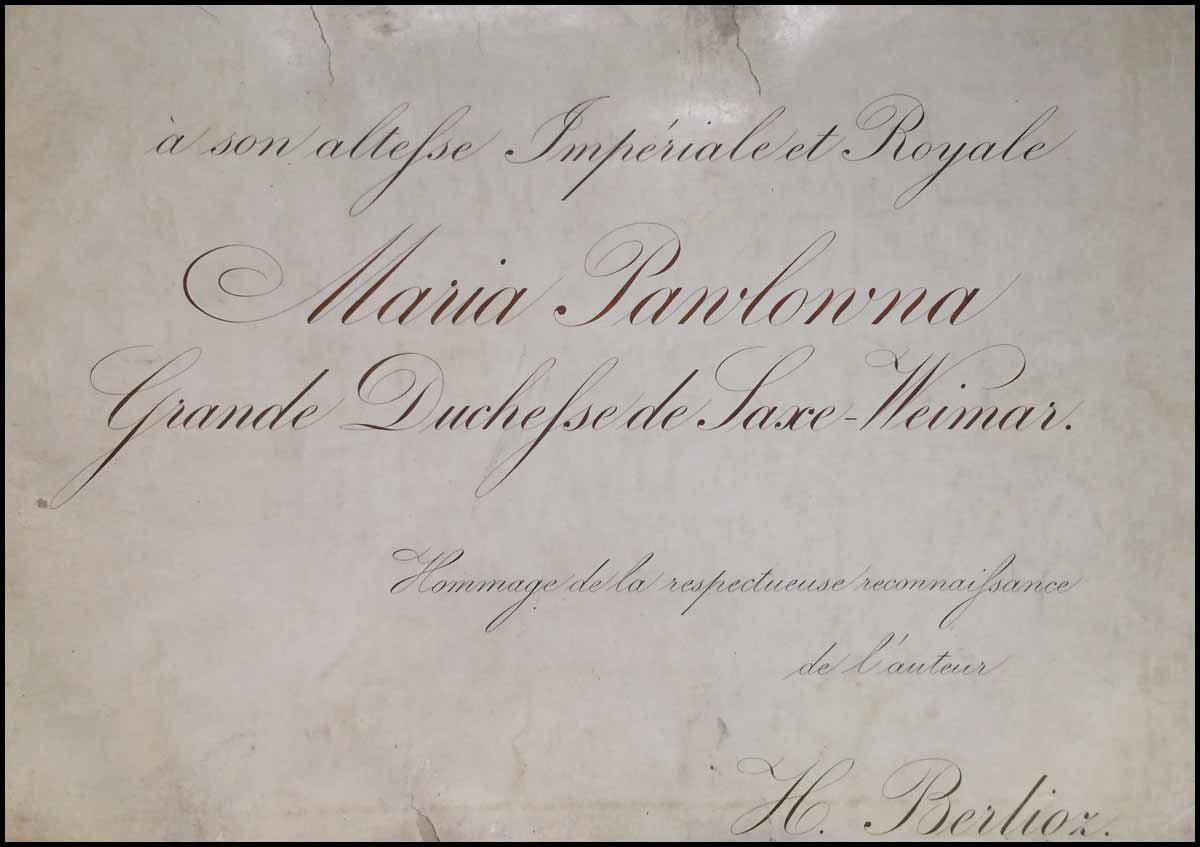 à son altesse Impériale et Royale
Maria Pawlowna
Grande Duchesse de Saxe-Weimar.
Hommage de la respectueuse reconnaissance
de l'auteur
H. Berlioz.